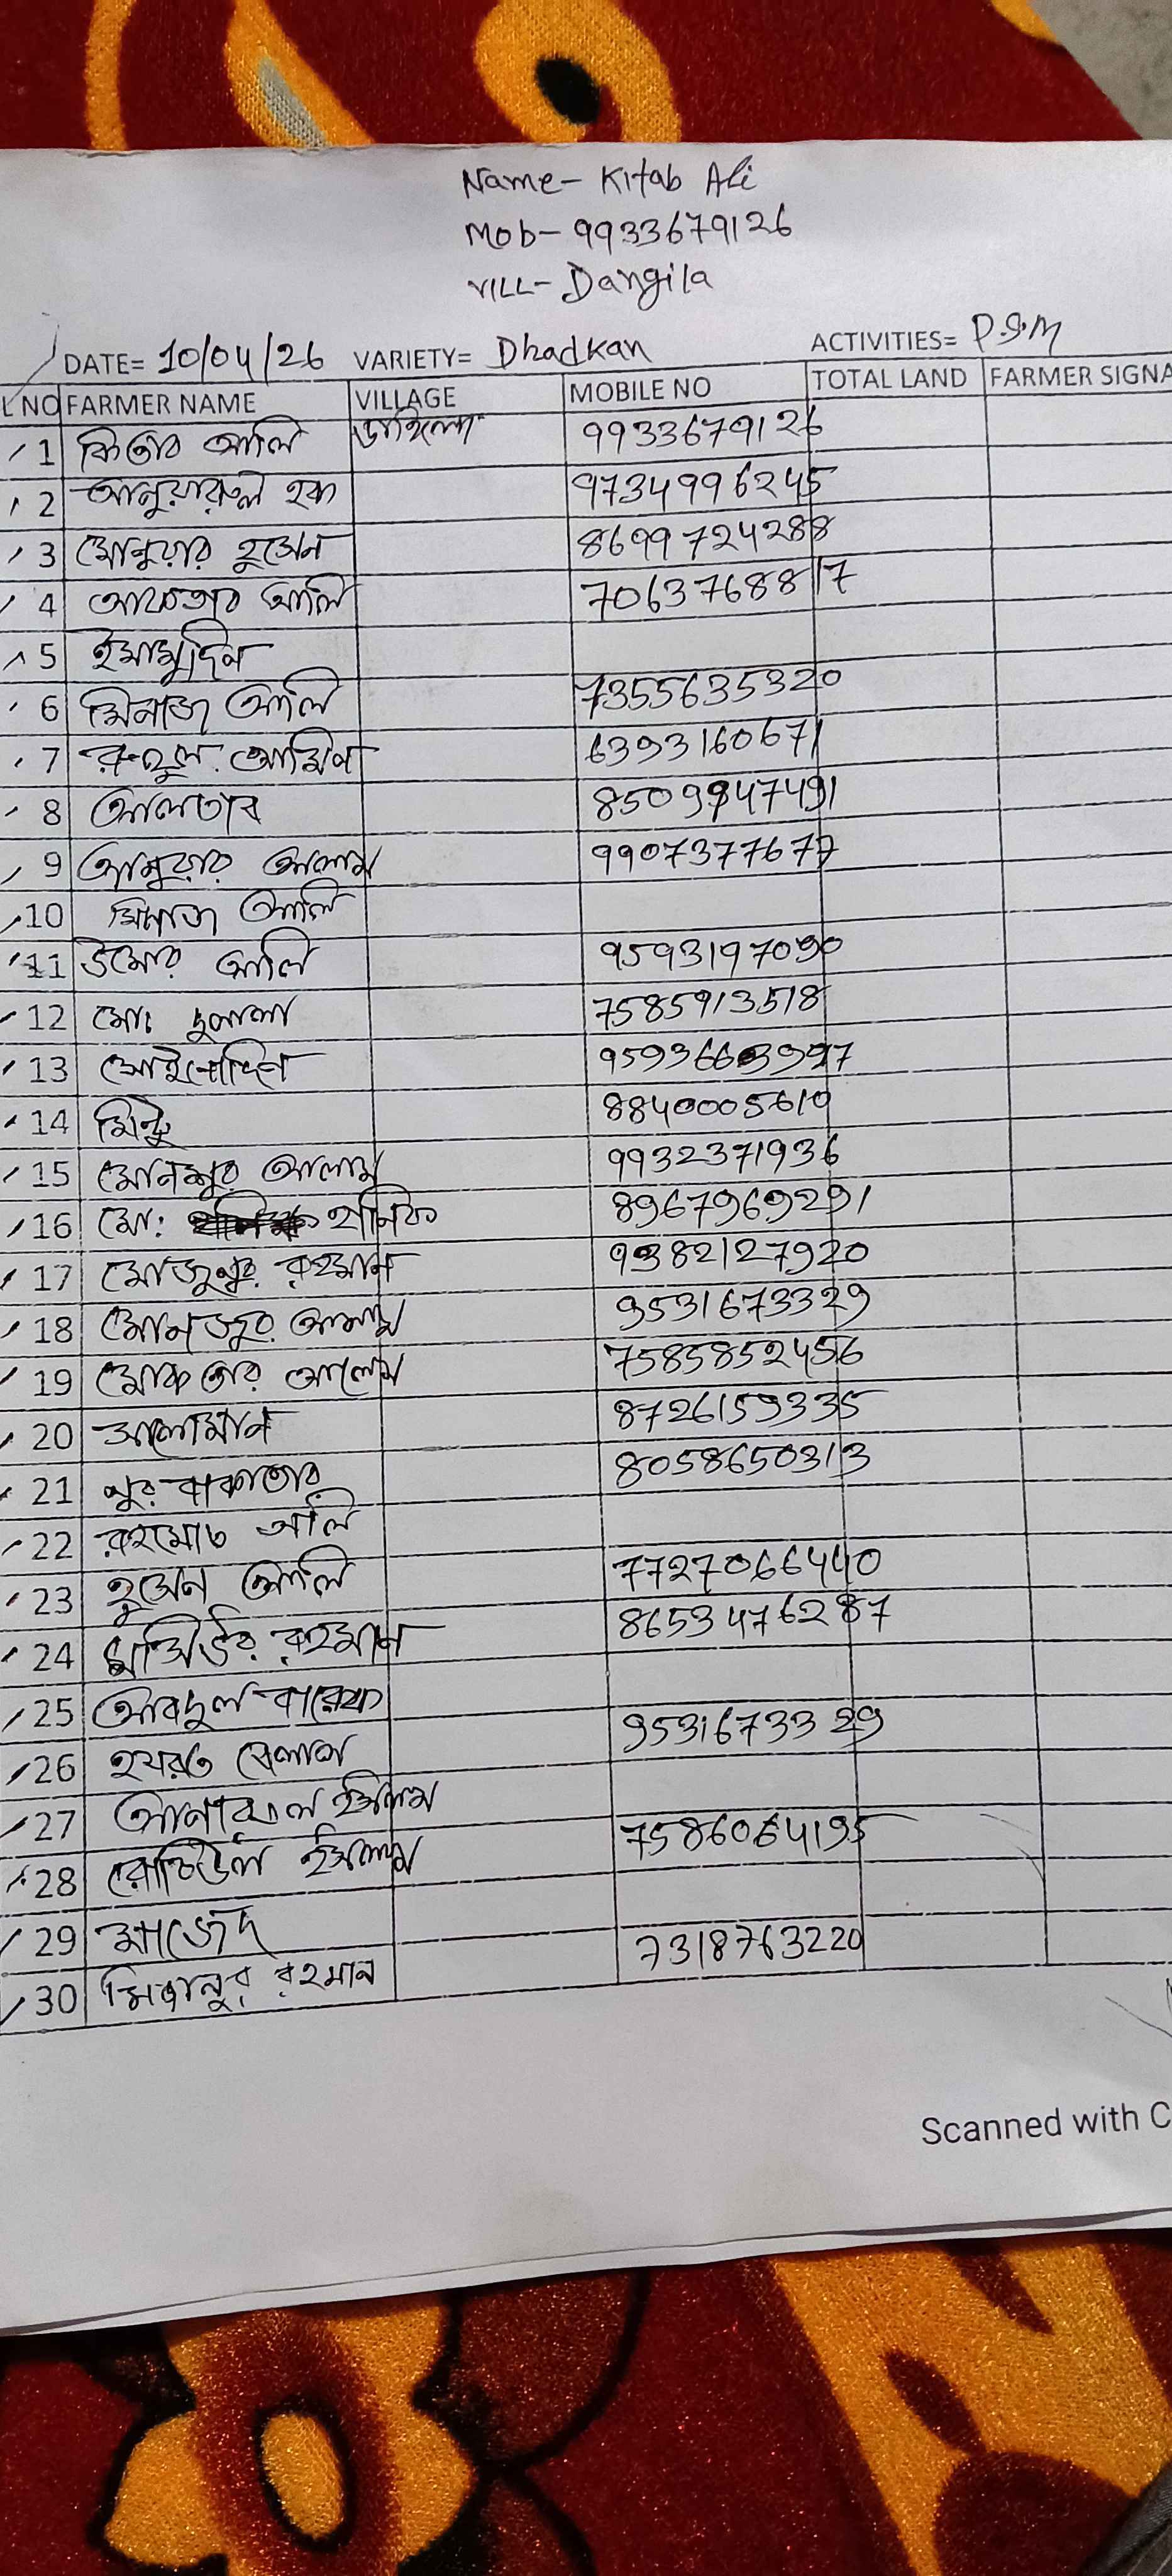 Name- Kitab Ali
Mob- 9933679126
VILL- Dangila
DATE= 10/04/26 VARIETY= Dhadkan ACTIVITIES= P.S.M
L NO FARMER NAME VILLAGE MOBILE NO TOTAL LAND FARMER SIGNA
1 কিতাব আলি 9933679126
2 আনুয়ারুল হক 9734996245
3 মোনুয়ার হুসেন 8699724288
4 আফতাব আলি 7063768817
5 ইমামুদিন
6 মিনাজ আলি 7355635320
7 রুহুল আমিন 6393160671
8 আলতাব
9 আনুয়ার আলাম 9907377677
10 মিনাজ আলি
11 উমোর আলি 9593197090
12 মোঃ দুলাল 7585913518
13
14 মিন্টু 8840005610
15 মোনসুর আলাম 9932371936
16 মোঃ হানিফ 8967969291
17 রহমান 9382127920
18 মোনজুর আলাম 9531673329
19 মোকতার আলোম 7585852456
20 8726159335
21 নুর 8058650313
22 রহমোত আলি
23 হুসেন আলি 7727066440
24 রহমান 8653476287
25 আবদুল
26 হযরত বেলাল 9531673329
27 ইসলাম
28 ইসলাম 7586064195
29 মাজেদ
30 মিজানুর রহমান 7318763220
Scanned with C